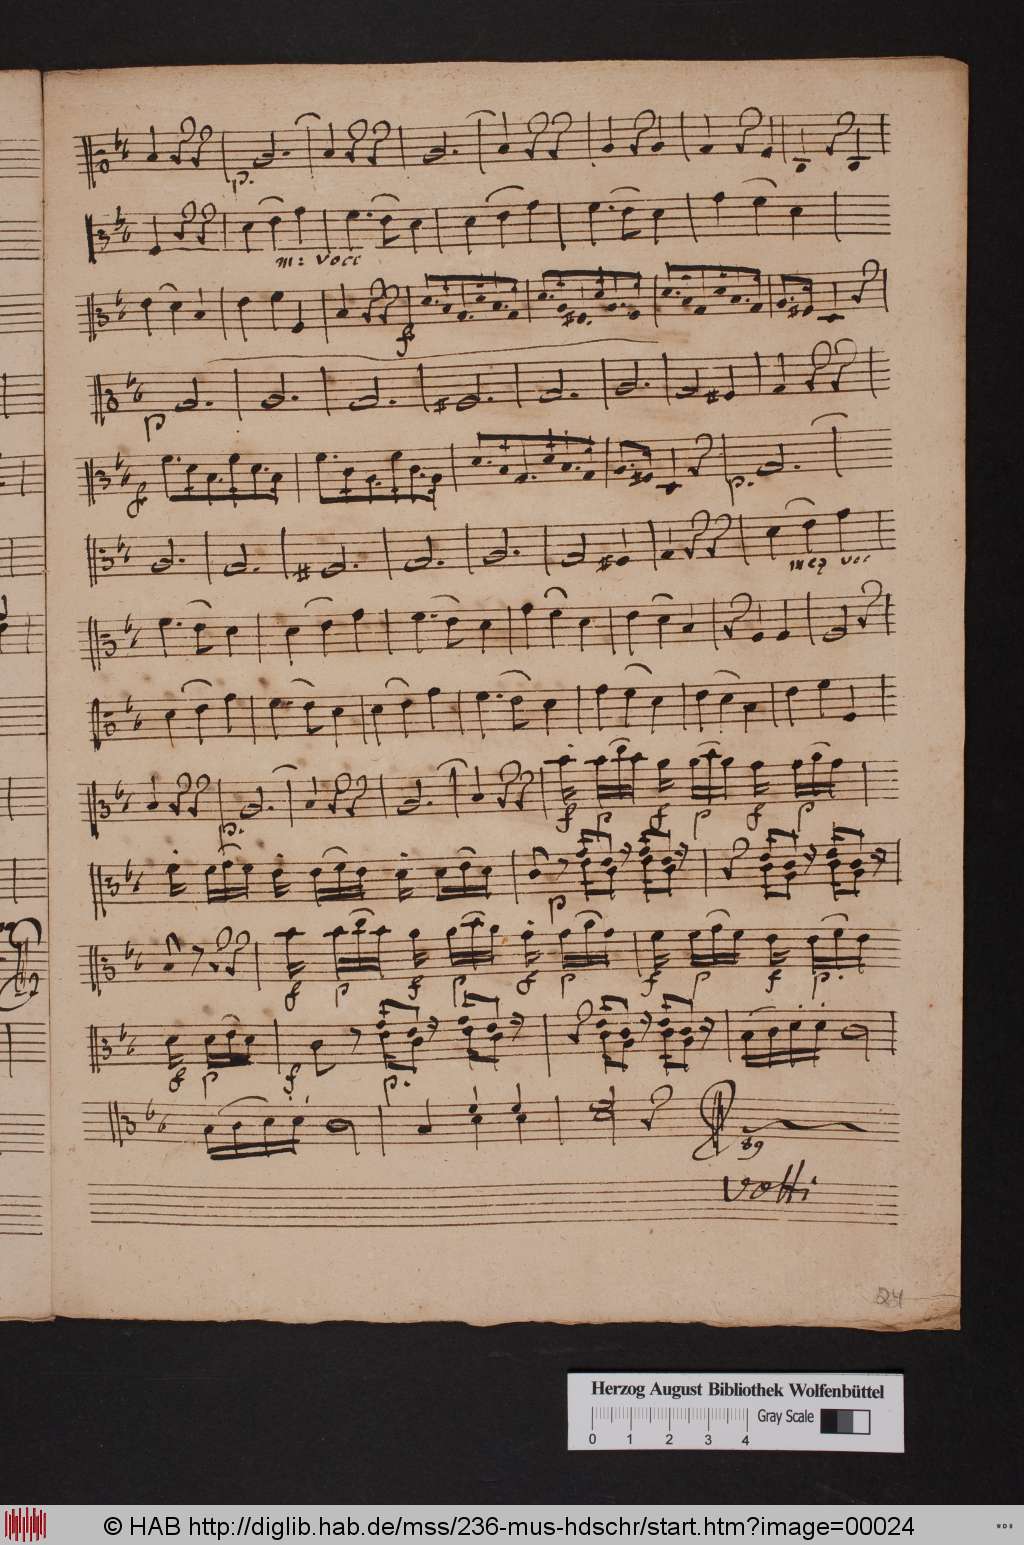 p.
m: voce
f
p
f p.
mez voc
p.
f p f p f p
p
f p f p f p f p f p.
f p f p.
volti
24
Herzog August Bibliothek Wolfenbüttel
Gray Scale
0 1 2 3 4
© HAB http://diglib.hab.de/mss/236-mus-hdschr/start.htm?image=00024